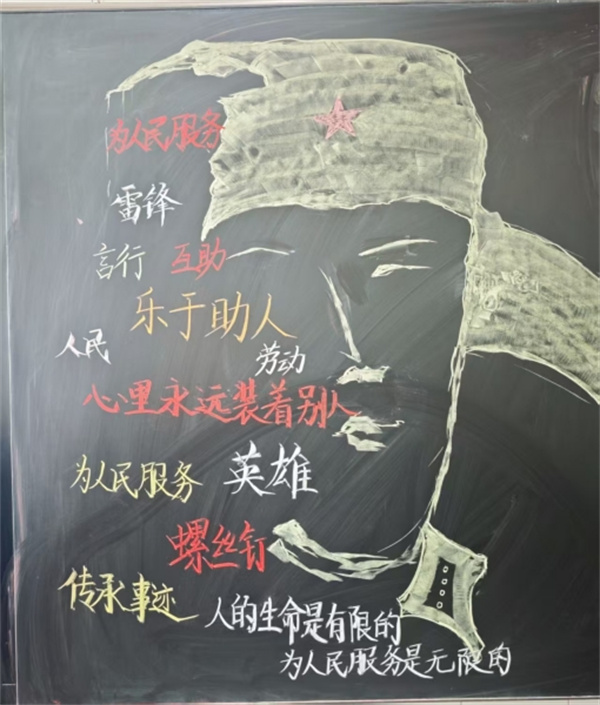 为人民服务
雷锋
言行 互助
乐于助人
人民 劳动
心里永远装着别人
为人民服务 英雄
螺丝钉
传承事迹
人的生命是有限的
为人民服务是无限的